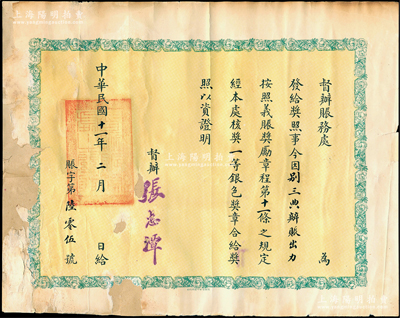 督辦賑務處　為
發給獎照事今因別三典辦賑出力
按照義賑獎勵章程第十一條之規定
經本處核獎一等銀色獎章合給獎
照以資證明
督辦 張志潭
中華民國十一年二月　日給
賑字第陸零伍號
上海陽明拍賣